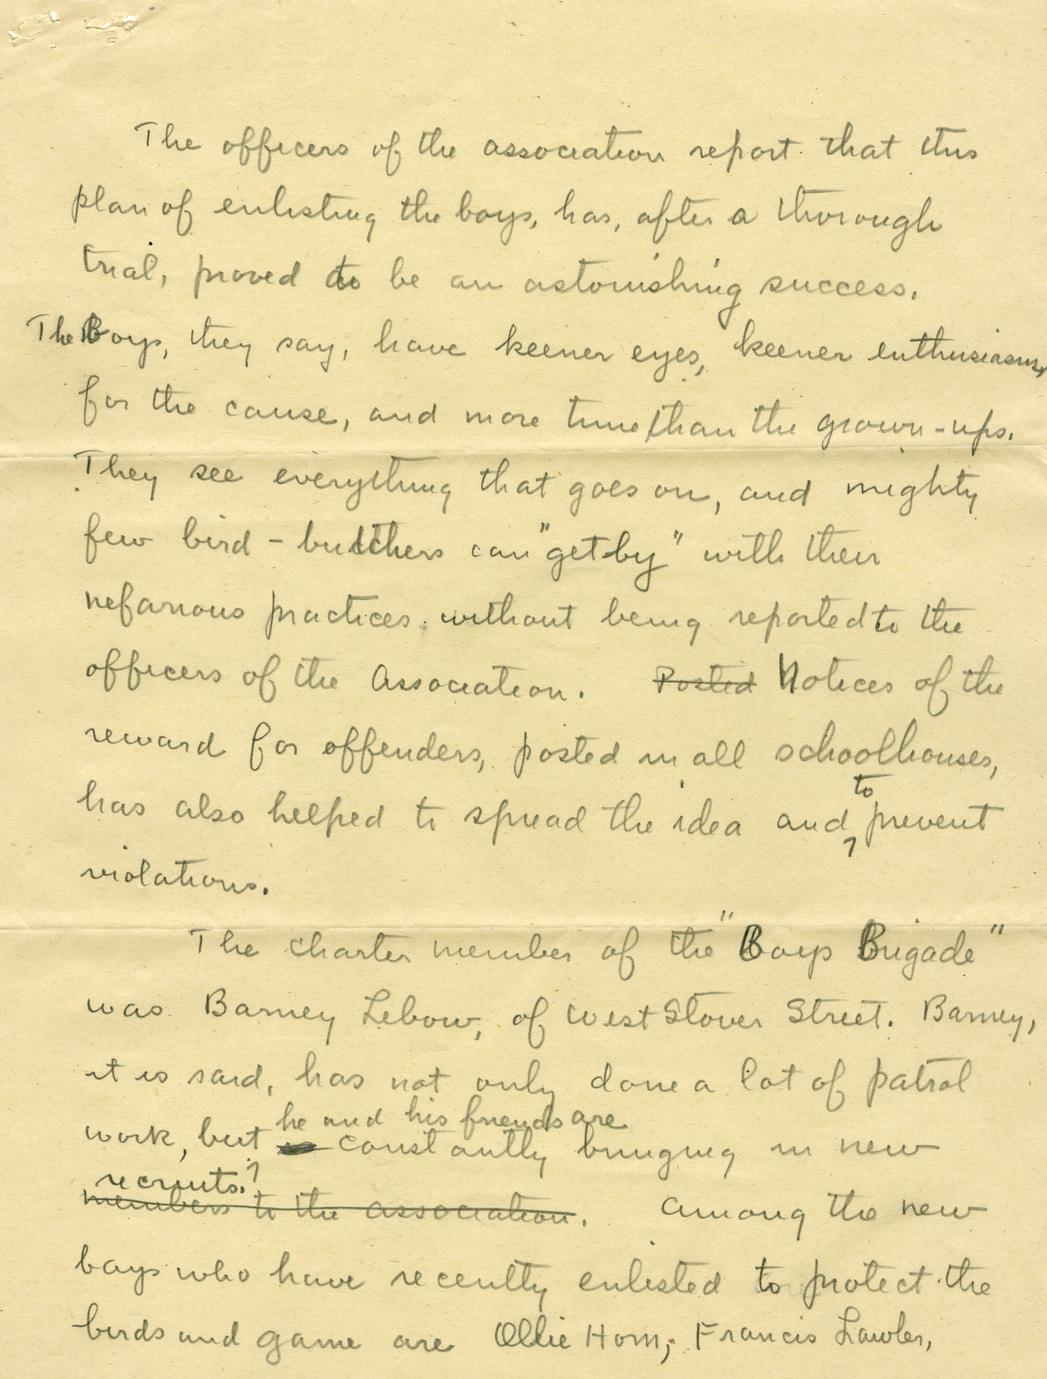 The officers of the association report that this
plan of enlisting the boys, has, after a thorough
trial, proved to be an astonishing success.
The Boys, they say, have keener eyes, keener enthusiasm,
for the cause, and more time than the grown-ups.
They see everything that goes on, and mighty
few bird-butchers can "get by" with their
nefarious practices without being reported to the
officers of the Association. Posted Notices of the
reward for offenders, posted in all schoolhouses,
has also helped to spread the idea and to prevent
violations.
The charter member of the "Boys Brigade"
was Barney Lebow, of West Stover Street. Barney,
it is said, has not only done a lot of patrol
he and his friends are
work, but constantly bringing in new
recruits.
members to the association. Among the new
boys who have recently enlisted to protect the
birds and game are Ollie Horn; Francis Lawler,